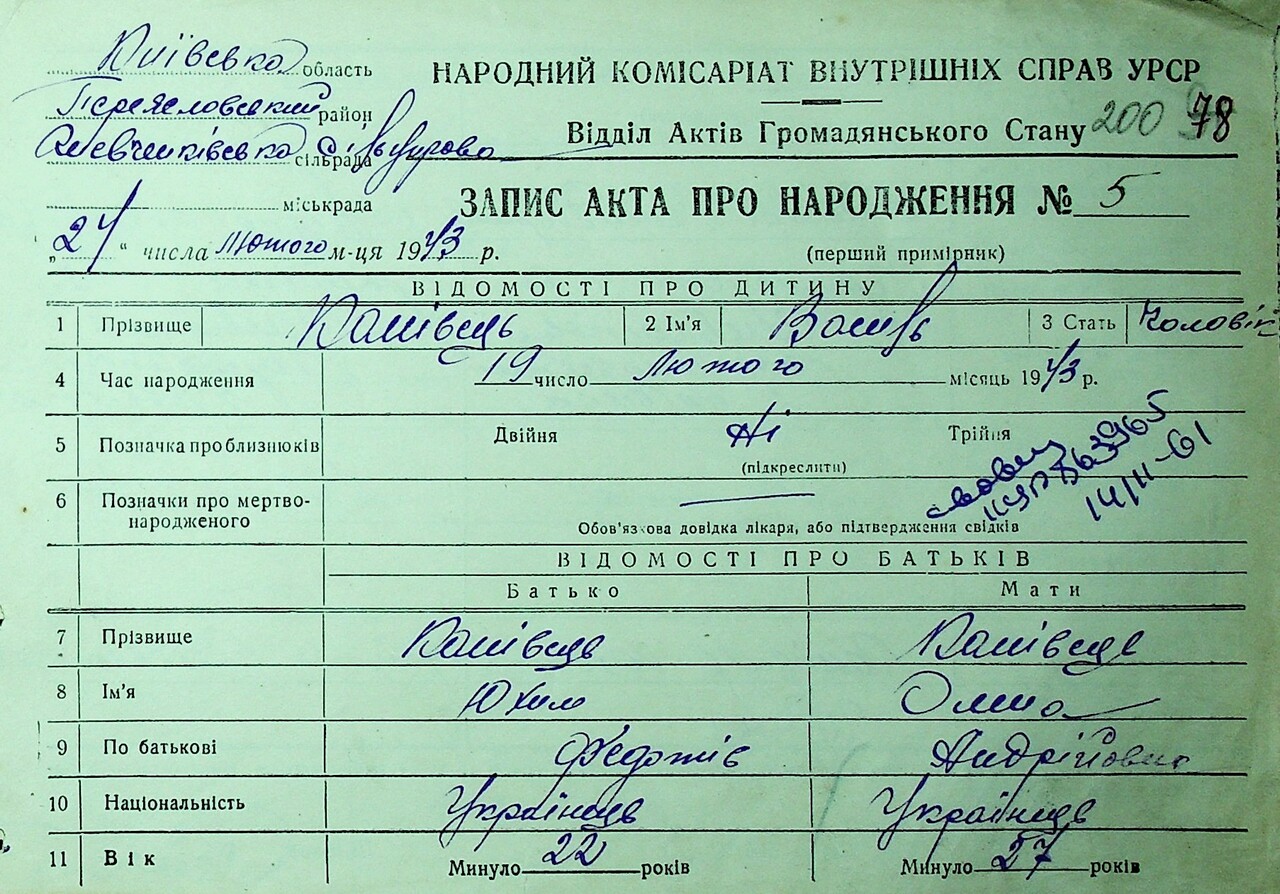 Київська область
НАРОДНИЙ КОМІСАРІАТ ВНУТРІШНІХ СПРАВ УРСР
Переяславський район
Відділ Актів Громадянського Стану 200 78
сільрада
міськрада
ЗАПИС АКТА ПРО НАРОДЖЕННЯ № 5
„24“ числа Лютого м-ця 1943 р.
(перший примірник)
ВІДОМОСТІ ПРО ДИТИНУ
1 Прізвище Канівець 2 Ім'я Василь 3 Стать Чоловік
4 Час народження 19 число Лютого місяць 1943 р.
5 Позначка про близнюків Двійня Ні Трійня
(підкреслити)
14/II-61
6 Позначки про мертво-
народженого
Обов'язкова довідка лікаря, або підтвердження свідків
ВІДОМОСТІ ПРО БАТЬКІВ
Батько Мати
7 Прізвище Канівець Канівець
8 Ім'я Юхим
9 По батькові Андрійовна
10 Національність Українець Українець
11 Вік Минуло 22 років Минуло 27 років